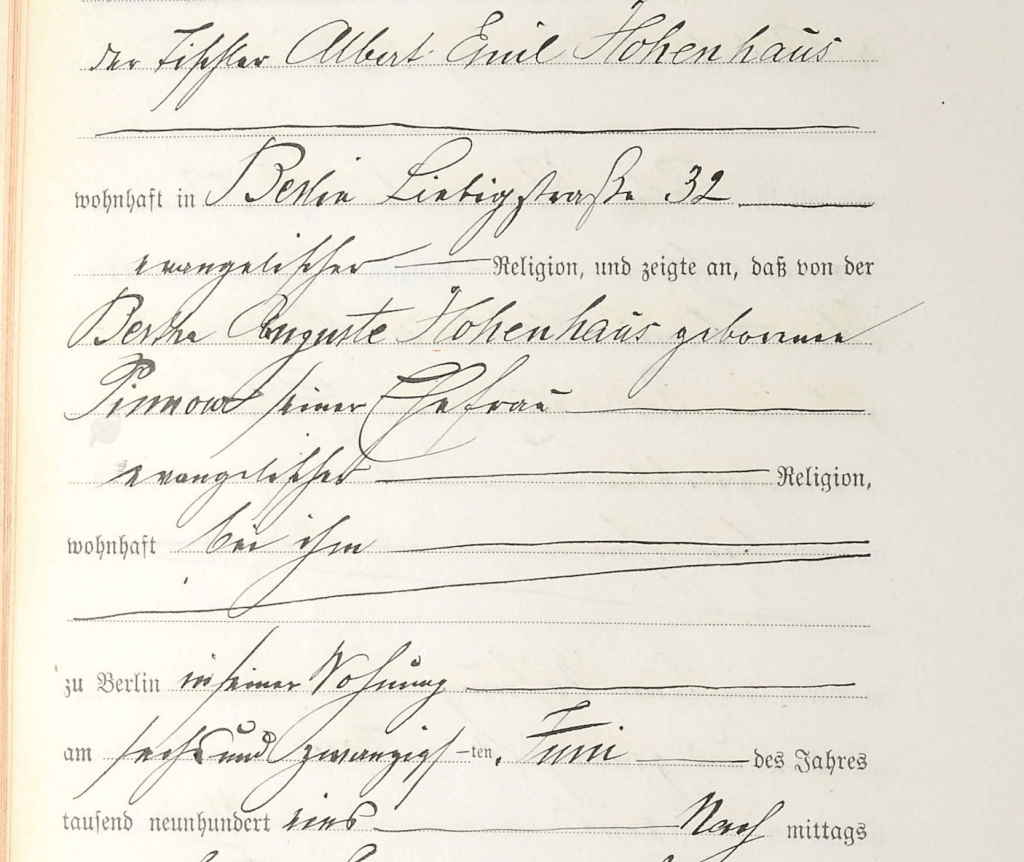 der Tischler Albert Emil Hohenhaus
wohnhaft in Berlin Liebigstraße 32
evangelischer Religion, und zeigte an, daß von der
Bertha Auguste Hohenhaus geborenen
Pinnow seiner Ehefrau
evangelischer Religion,
wohnhaft bei ihm
zu Berlin in seiner Wohnung
am sechs und zwanzigsten, Juni des Jahres
tausend neunhundert eins Nach mittags